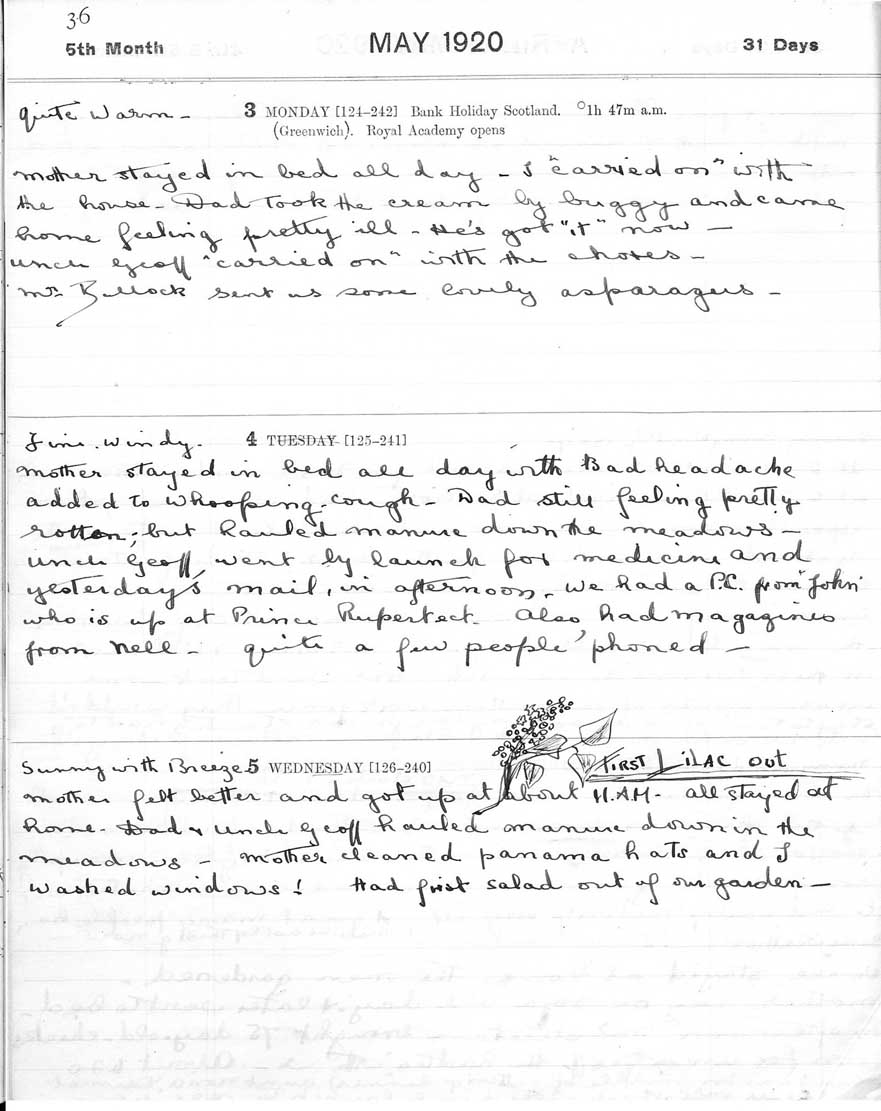 36
5th Month MAY 1920 31 Days
quite warm - 3 MONDAY [124-242] Bank Holiday Scotland. ○1h 47m a.m.
(Greenwich). Royal Academy opens
mother stayed in bed all day - I "carried on" with
the house - Dad took the cream by buggy and came
home feeling pretty ill - He's got "it" now -
uncle Geoff "carried on" with the chores -
Mrs. Bullock sent us some lovely asparagus -
Fine. windy. 4 TUESDAY [125-241]
mother stayed in bed all day with Bad headache
added to whooping-cough - Dad still feeling pretty
rotten; but hauled manure down the meadows -
uncle Geoff went by launch for medicine and
yesterday's mail, in afternoon. We had a P.C. from "John"
who is up at Prince Rupert. Also had magazines
from Nell - quite a few people 'phoned -
Sunny with Breeze 5 WEDNESDAY [126-240] FIRST LILAC OUT
mother felt better and got up at about 11.A.M - all stayed at
home. Dad & uncle Geoff hauled manure down in the
meadows - mother cleaned panama hats and I
washed windows! Had first salad out of our garden -